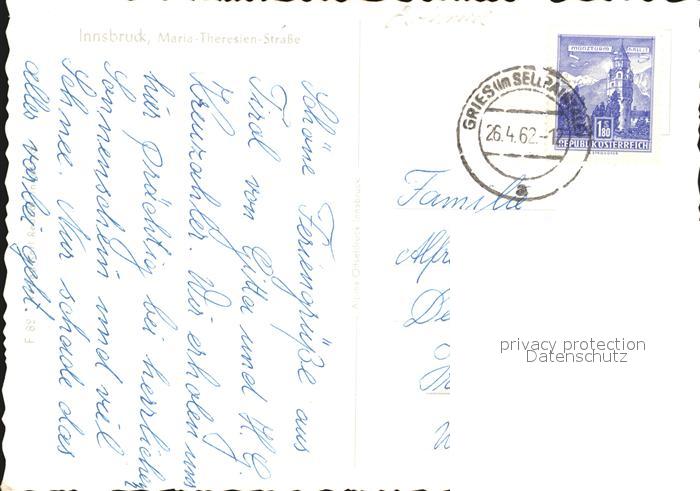 Innsbruck, Maria-Theresien-Straße
Schöne Feriengrüße aus
Tirol von Gitta und H. G.
Kreuzahler. Wir erholen uns
hier prächtig bei herrlichen
Sonnenschein und viel
Schnee. Nur schade das
alles vorbei geht.
Alpina Offsetdruck Innsbruck
MÜNZTURM HALL i.T.
S 1.80
REPUBLIK ÖSTERREICH
GRIES (IM SELLRAIN)
26.4.62.-12
a
Familie
Alfr
De
privacy protection
Datenschutz